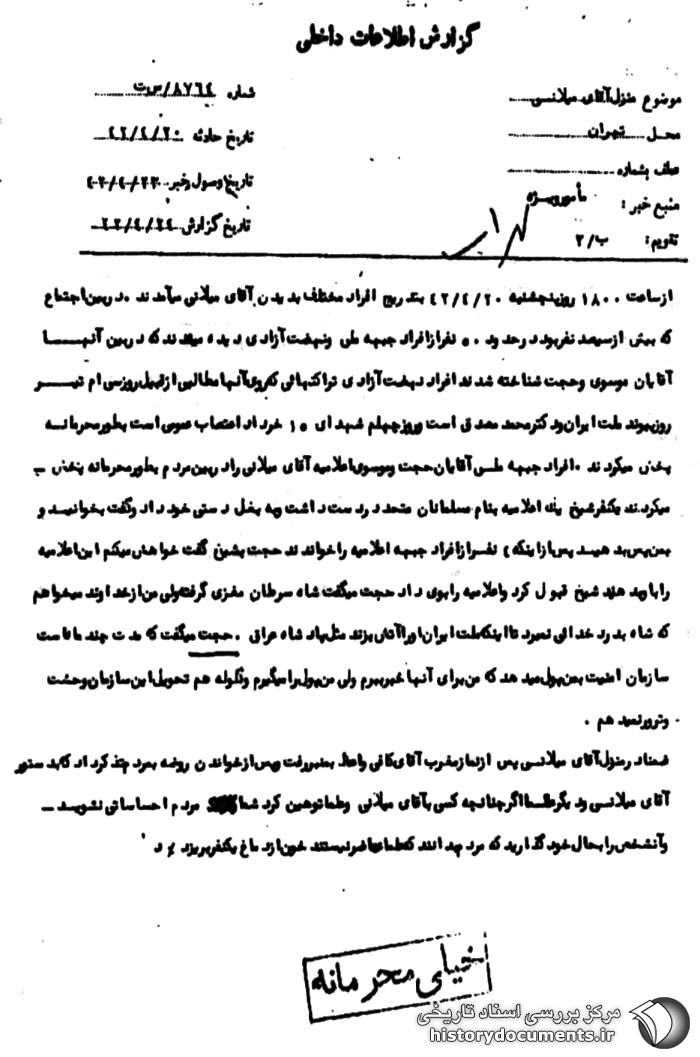 گزارش اطلاعات داخلی
موضوع منزل آقای میلانی
شماره ۸۷۶٤/س ت
محل تهران
تاریخ حادثه ٤۲/٤/۲۰
عطف بشماره
تاریخ وصول خبر ٤۲/٤/۲۳
منبع خبر : مأمور ویژه
تاریخ گزارش ٤۲/٤/۲٤
تقویم : ب/۲
۱
از ساعت ۱۸۰۰ روز پنجشنبه ٤۲/٤/۲۰ بتدریج افراد مختلف بدیدن آقای میلانی میآمدند ۰ در بین اجتماع
که بیش از سیصد نفر بود در حدود ۵۰ نفر از افراد جبهه ملی ونهضت آزادی دیده میشدند که در بین آنهـــا
آقایان موسوی وحجت شناخته شدند افراد نهضت آزادی تراکتهائی که روی آنها مطالبی از قبیل روز سی ام تیـــر
روز پیوند ملت ایران ودکتر محمد مصدق است وروز چهلم شهدای ۱۵ خرداد اعتصاب عمومی است بطور محرمانـه
پخش میکردند ۰ افراد جبهه ملـی آقایان حجت وموسوی اعلامیه آقای میلانی را در بین مردم بطور محرمانه پخش ــ
میکردند یکنفر شیخ یک اعلامیه بنام مسلمانان متحد در دست داشت وبه بغل دستی خود داد وگفت بخوانیـد و
بمن پس بدهیـد پس از اینکه ٤ نفـر از افراد جبهه اعلامیه را خواندند حجت بشیخ گفت خواهش میکنم این اعلامیه
را باو بدهید شیخ قبول کرد واعلامیه را بوی داد حجت میگفت شاه سرطان مغزی گرفته ولی من از خداوند میخواهم
که شاه بدرد خدائی نمیرد تا اینکه ملت ایران اورا آتش بزند مثل شاه عراق ۰ حجت میگفت که مدت چند ماه است
سازمان امنیت بمن پول میدهد که من برای آنها خبر ببرم ولی من پول را میگیرم وگلوله هم تحویل این سازمان وحشت
وترور نمیدهم ۰
ضمناً در منزل آقای میلانـی پس از نماز مغرب آقای کافی واعظ بمنبر رفت وپس از خواندن روضه بمردم تذکر داد که بدستور
آقای میلانـی ودیگر علمـا اگر چنانچه کسی بآقای میلانی وعلما توهین کرد شما مردم احساساتی نشویـد ــ
وآنشخص را بحال خود گذارید که مردم بدانند که علما حاضر نیستند خون از دماغ یکنفر بریزد
خیلی محرمانه
مرکز بررسی اسناد تاریخی
historydocuments.ir